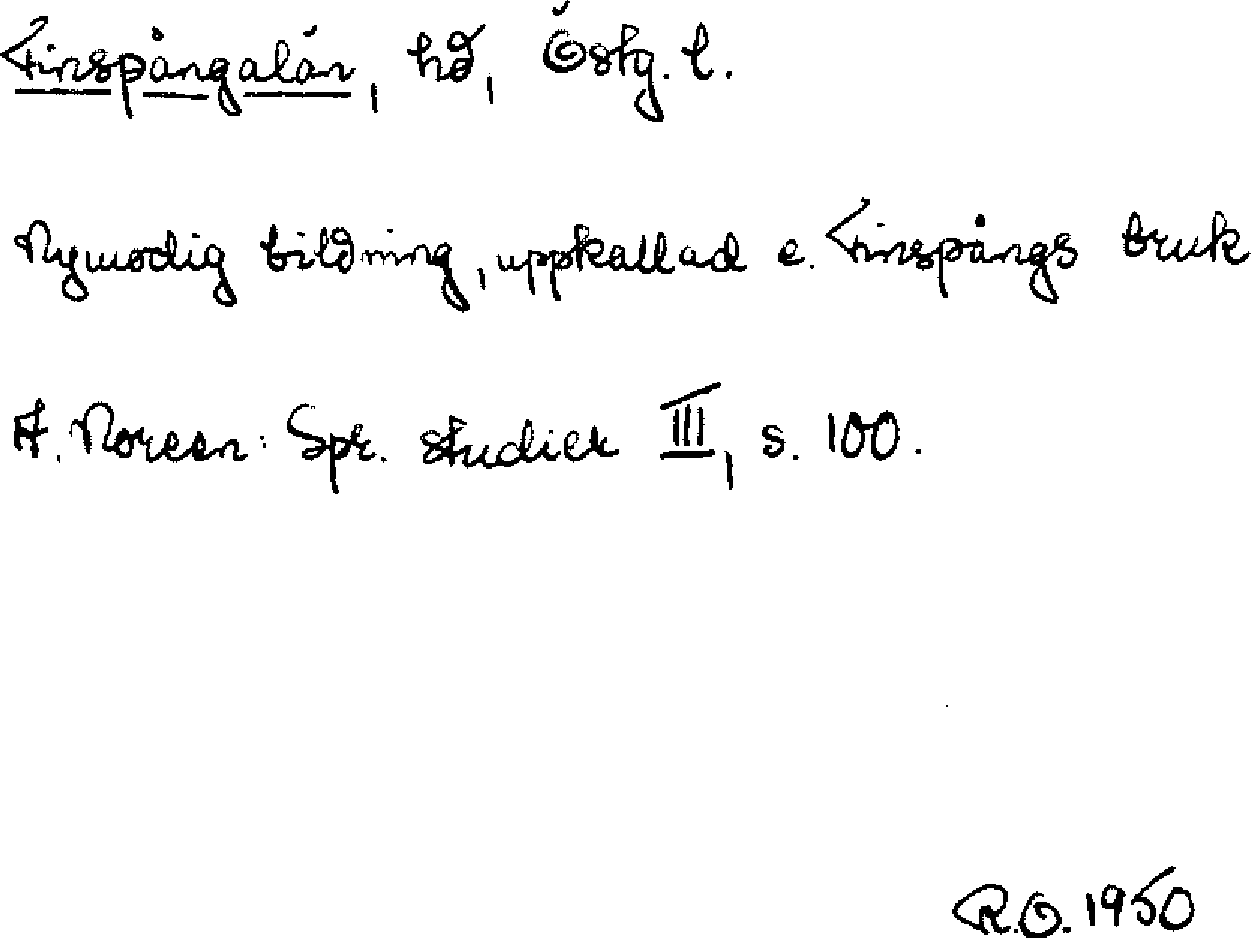 Finspångalän, hd, Östg. l.
Nymodig bildning, uppkallad e. Finspångs bruk
A. Noreen: Spr. studier III, s. 100.
R.O. 1950